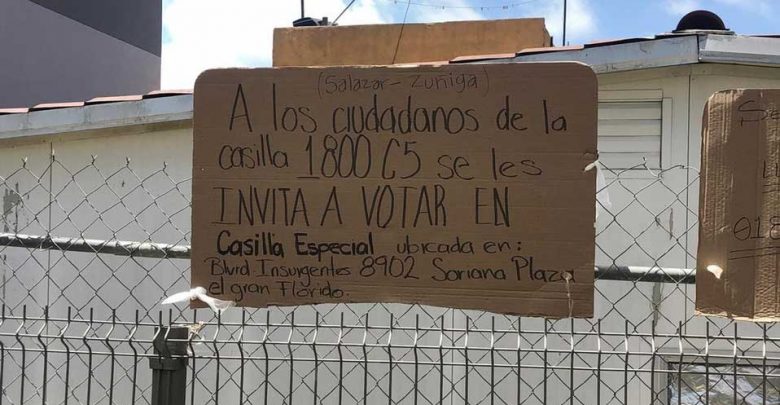 (Salazar - Zuñiga)
A los ciudadanos de la
casilla 1800 C5 se les
INVITA A VOTAR EN
Casilla Especial ubicada en:
Blvrd Insurgentes 8902 Soriana Plaza
el gran Florido.